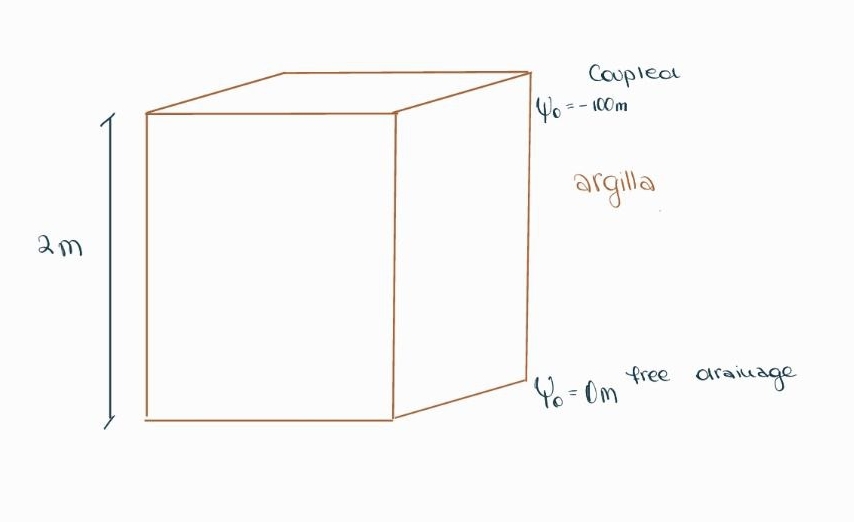 Coupled
ψ₀ = - 100m
argilla
2m
ψ₀ = 0m free drainage